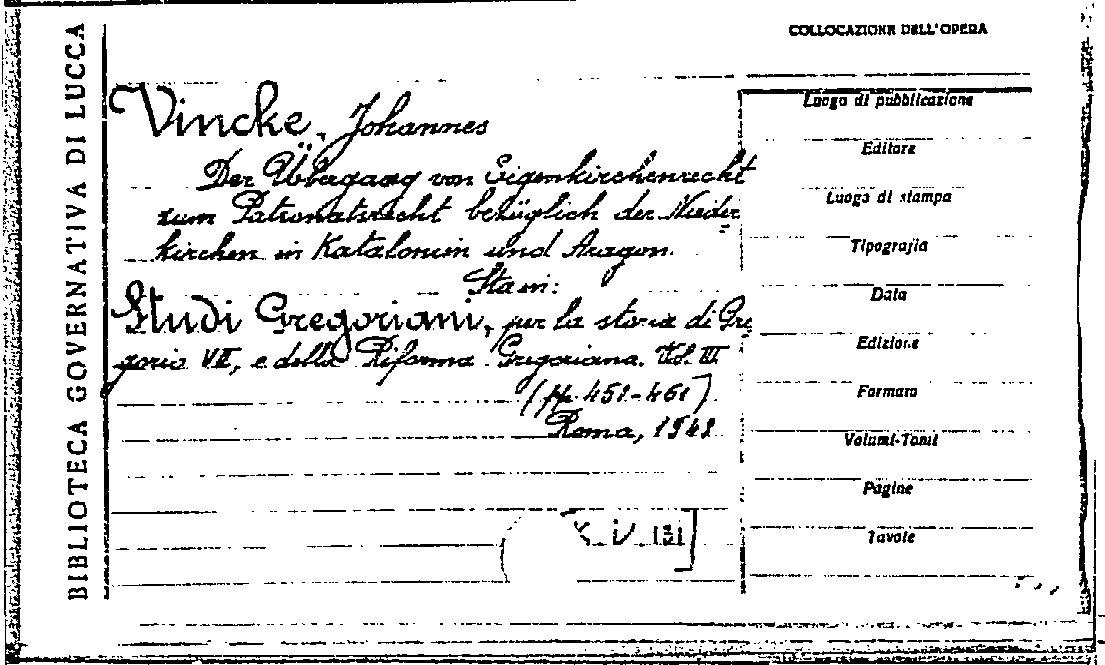 BIBLIOTECA GOVERNATIVA DI LUCCA
COLLOCAZIONE DELL'OPERA
Vincke, Johannes
Der Übergang von Eigenkirchenrecht
zum Patronatsrecht bezüglich der Nieder
kirchen in Katalonien und Aragon.
Sta in:
Studi Gregoriani, per la storia di Gre
gorio VII, e della Riforma Gregoriana. Vol. III
(pp. 451-461)
Roma, 1948
X. IV. 131]
Luogo di pubblicazione
Editore
Luogo di stampa
Tipografia
Data
Edizione
Formato
Volumi-Tomi
Pagine
Tavole